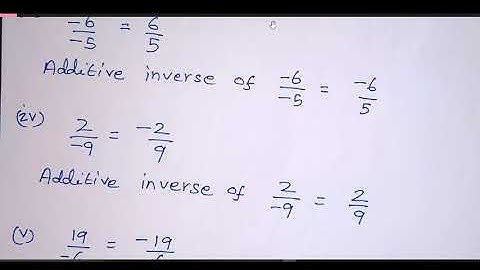 -6/-5 = 6/5
Additive inverse of -6/-5 = -6/5
(iv) 2/-9 = -2/9
Additive inverse of 2/-9 = 2/9
(v) 19/-6 = -19/6